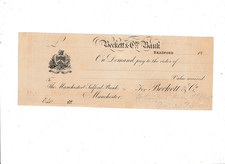 Beckett & Co's Bank
BRADFORD
On Demand pay to the order of
Value received
To
The Manchester & Salford Bank
Manchester.
For Beckett & Co.